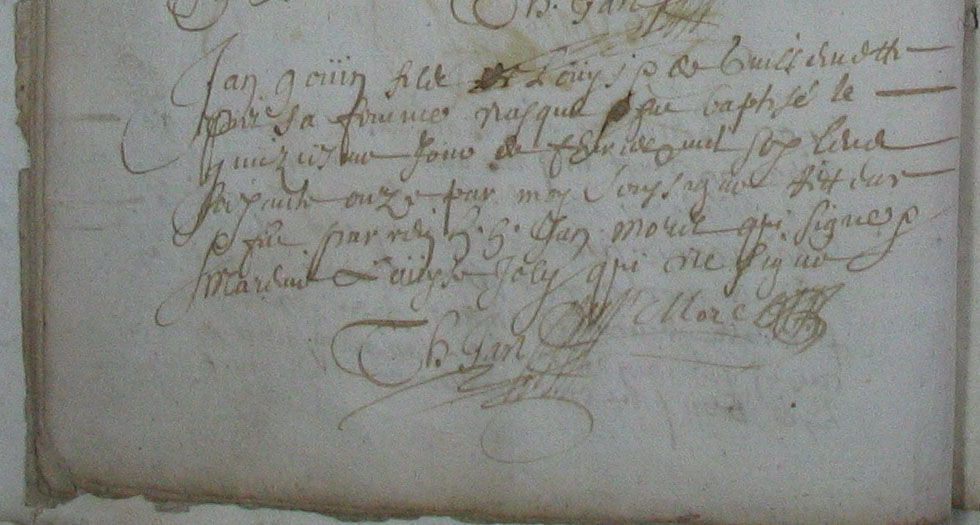 Th. Gan
Jan gouin filz de Louys p de Guillemette
sa femme nasquit p fut baptisé le
quinziesme Jour de febvrier mil six cens
soixante onze par moy soussigné
p fut parrein h. h. Jan More qui signe p
Mareine Louyse Joly qui ne signe
Th. Gan More